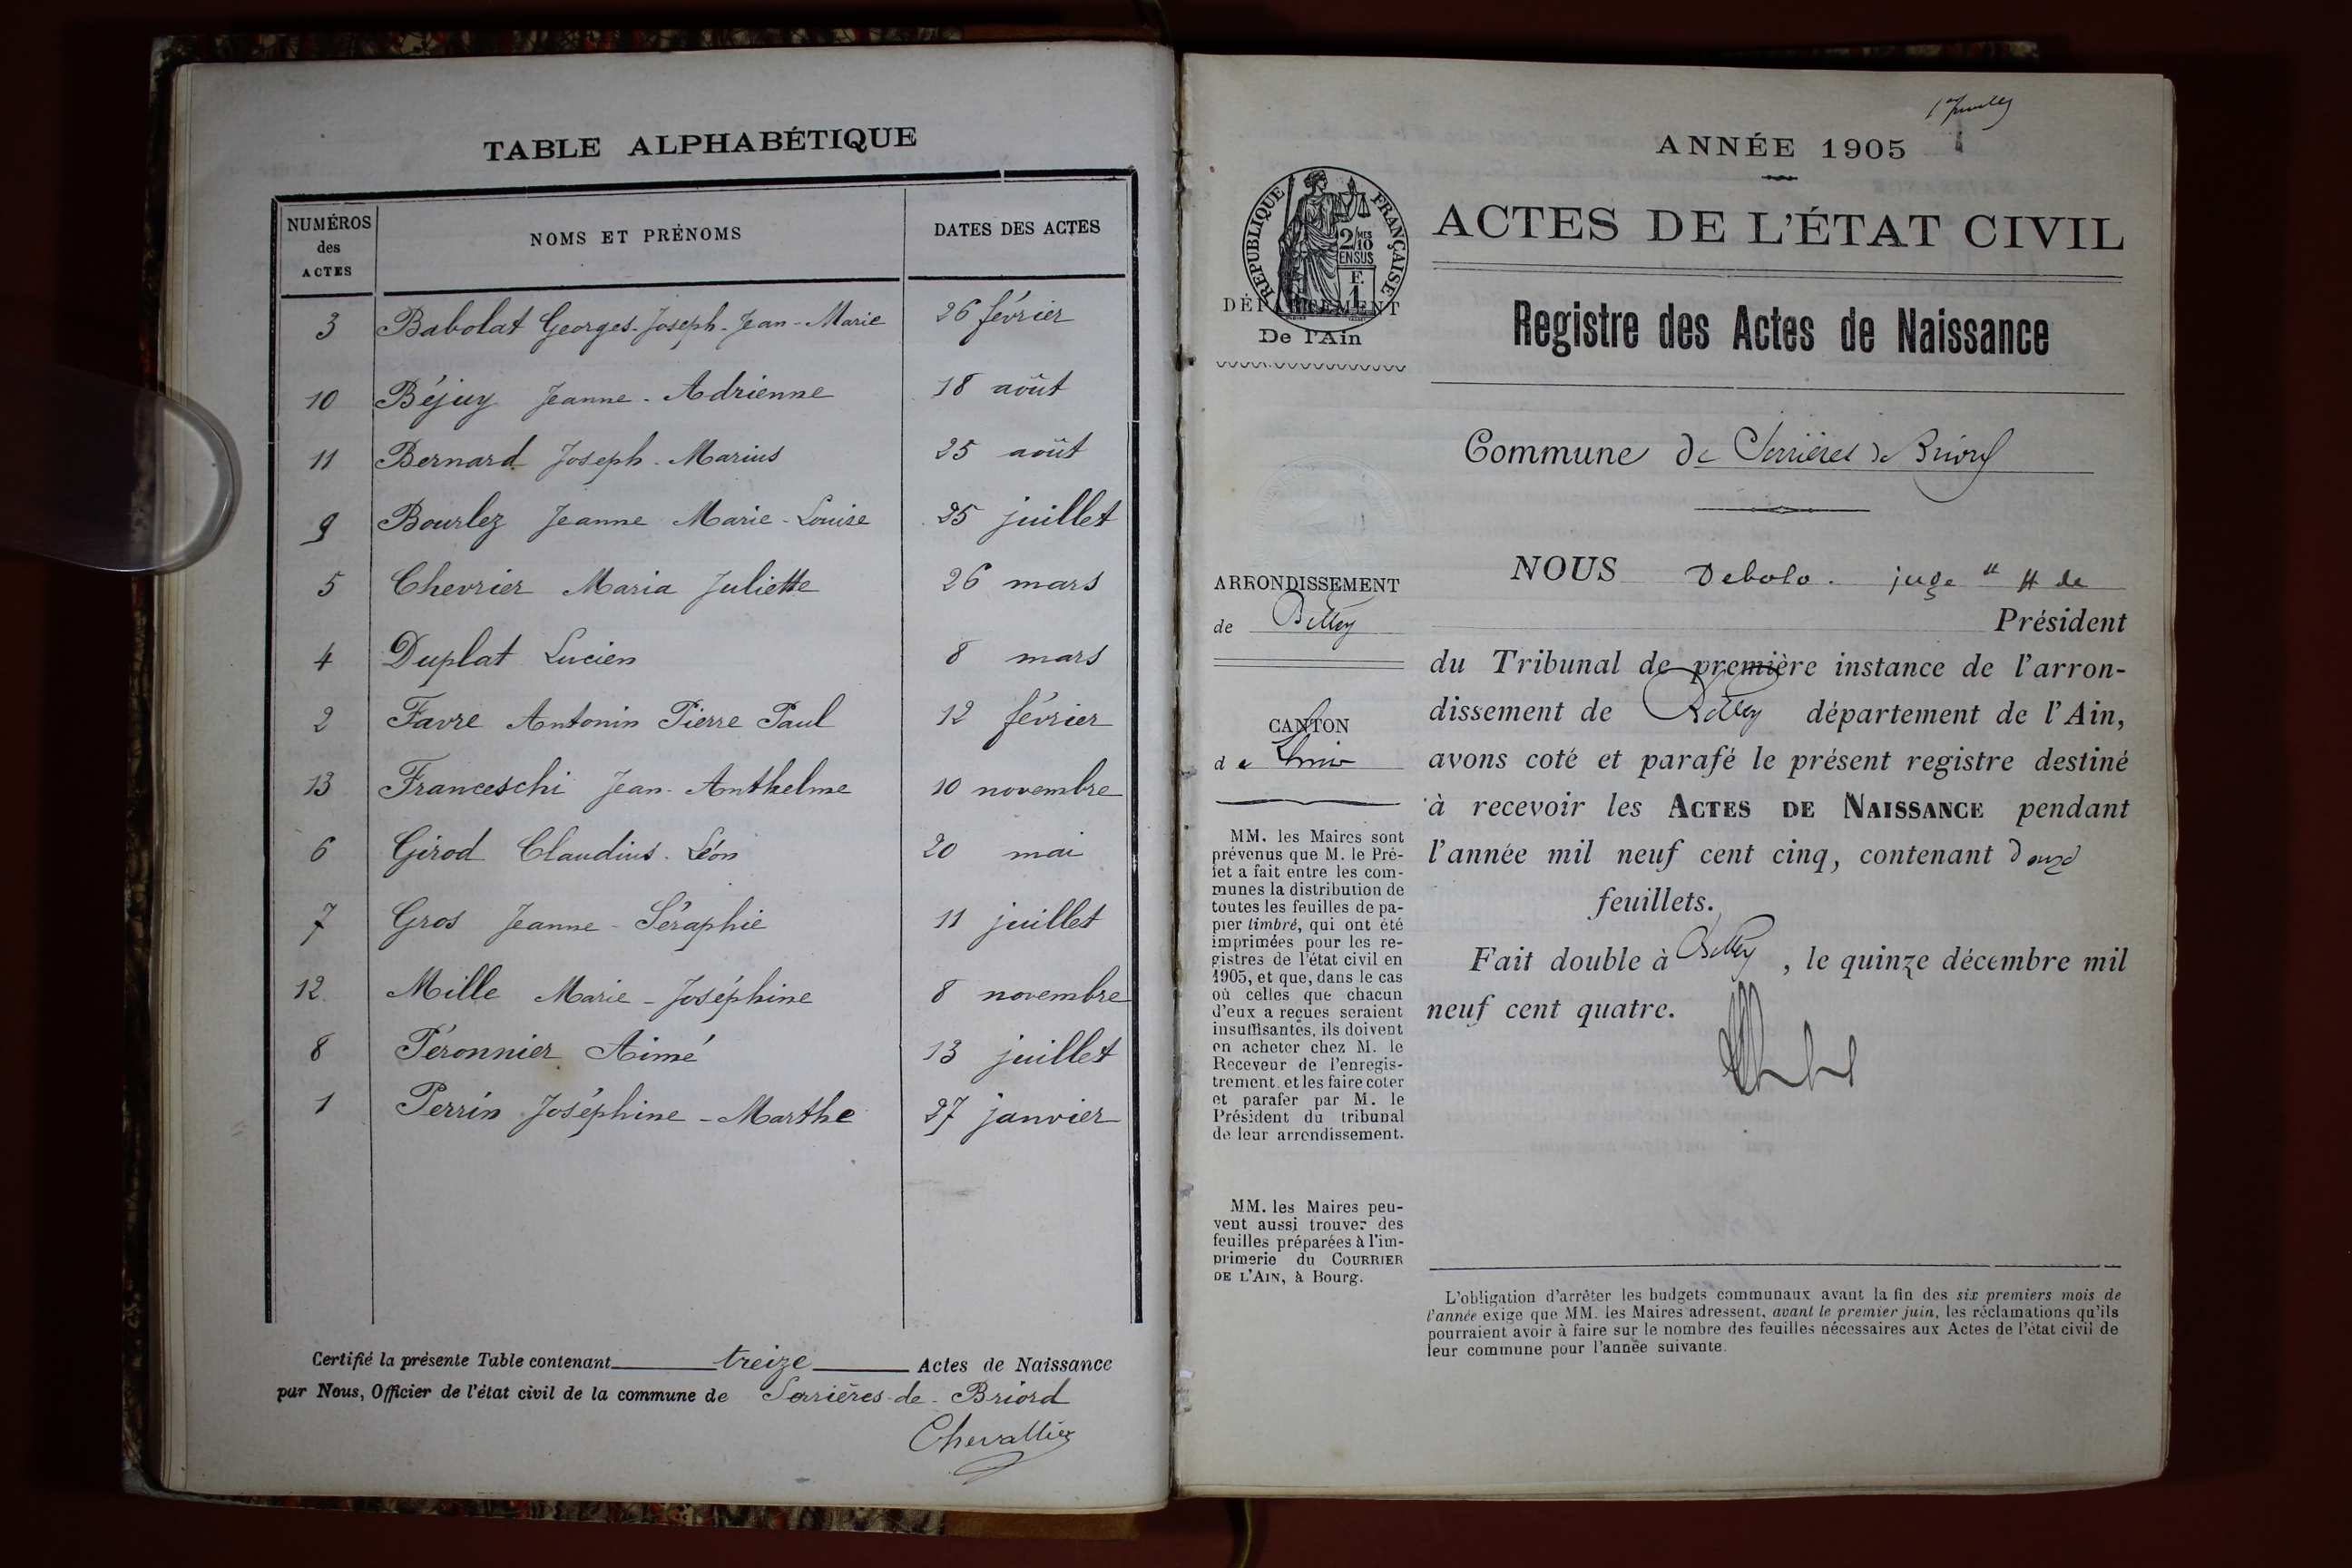 TABLE ALPHABÉTIQUE
NUMÉROS des ACTES
NOMS ET PRÉNOMS
DATES DES ACTES
3 Babolat Georges-Joseph-Jean-Marie 26 février
10 Béjuy Jeanne-Adrienne 18 août
11 Bernard Joseph-Marius 25 août
9 Bourlez Jeanne Marie-Louise 25 juillet
5 Chevrier Maria Juliette 26 mars
4 Duplat Lucien 8 mars
2 Favre Antonin Pierre Paul 12 février
13 Franceschi Jean-Anthelme 10 novembre
6 Girod Claudius-Léon 20 mai
7 Gros Jeanne-Séraphie 11 juillet
12 Mille Marie-Joséphine 8 novembre
8 Péronnier Aimé 13 juillet
1 Perrin Joséphine-Marthe 27 janvier
Certifié la présente Table contenant treize Actes de Naissance
par Nous, Officier de l'état civil de la commune de Serrières-de-Briord
Chevallier
RÉPUBLIQUE FRANÇAISE
2/10 MES
EN SUS
F.
1
DÉPARTEMENT
De l'Ain
ARRONDISSEMENT
de Belley
CANTON
de Lhuis
MM. les Maires sont
prévenus que M. le Pré-
fet a fait entre les com-
munes la distribution de
toutes les feuilles de pa-
pier timbré, qui ont été
imprimées pour les re-
gistres de l'état civil en
1905, et que, dans le cas
où celles que chacun
d'eux a reçues seraient
insuffisantes, ils doivent
en acheter chez M. le
Receveur de l'enregis-
trement, et les faire coter
et parafer par M. le
Président du tribunal
de leur arrondissement.
MM. les Maires peu-
vent aussi trouver des
feuilles préparées à l'im-
primerie du COURRIER
DE L'AIN, à Bourg.
ANNÉE 1905
ACTES DE L'ÉTAT CIVIL
Registre des Actes de Naissance
Commune de Serrières de Briord
NOUS Debolo. juge
Président
du Tribunal de première instance de l'arron-
dissement de Belley département de l'Ain,
avons coté et parafé le présent registre destiné
à recevoir les ACTES DE NAISSANCE pendant
l'année mil neuf cent cinq, contenant douze
feuillets.
Fait double à Belley, le quinze décembre mil
neuf cent quatre.
L'obligation d'arrêter les budgets communaux avant la fin des six premiers mois de
l'année exige que MM. les Maires adressent, avant le premier juin, les réclamations qu'ils
pourraient avoir à faire sur le nombre des feuilles nécessaires aux Actes de l'état civil de
leur commune pour l'année suivante.